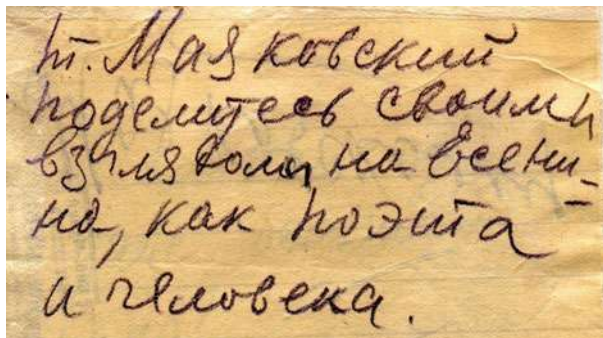 т. Маяковский
поделитесь своими
взглядом на Есени-
на, как поэта
и человека.